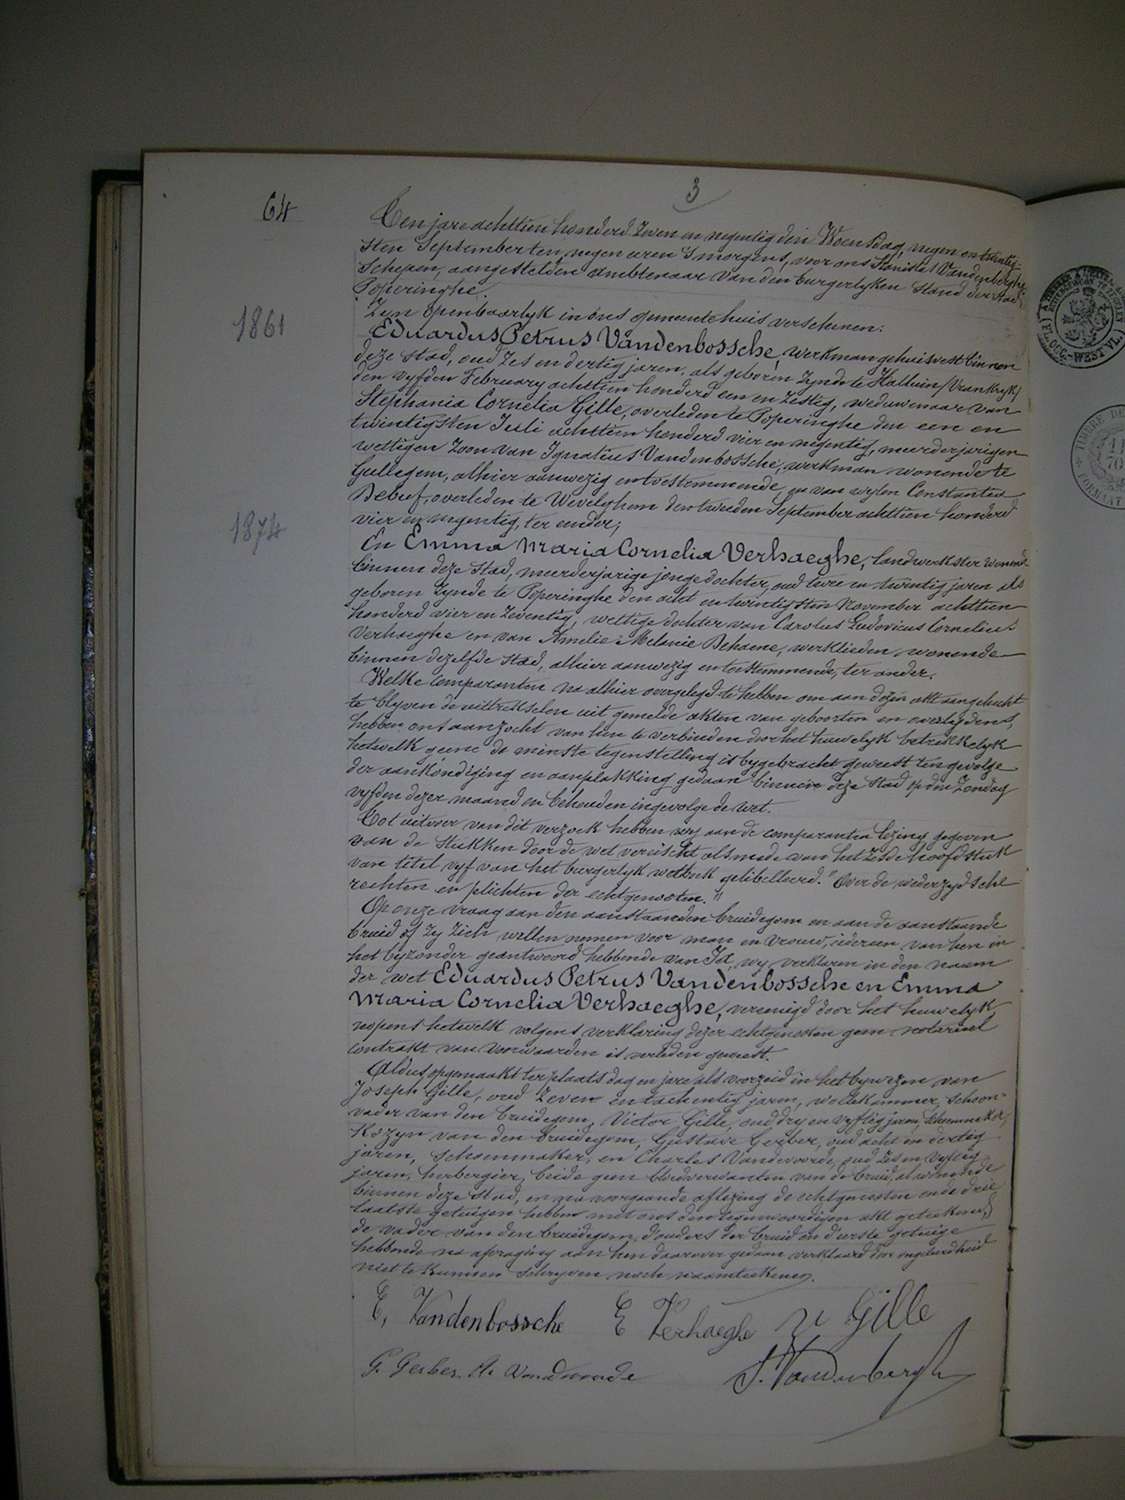 3
64
Ten jare achttien honderd zeven en negentig den Woensdag, negen en twintig-
sten September ten negen uren 's morgens, voor ons Vandenberghe,
Schepen, aangestelden ambtenaar van den burgerlyken Stand der Stad
Poperinghe.
Zyn openbaarlyk in ons gemeentehuis verschenen:
1861
Eduardus Petrus Vandenbossche, werkman gehuisvest binnen
deze Stad, oud zes en dertig jaren, als geboren zynde te Halluin (Vrankryk)
den vyfden February achttien honderd een en zestig, weduwenaar van
Stephania Cornelia Gille, overleden te Poperinghe den een en
twintigsten Juli achttien honderd vier en negentig, meerderjarigen
wettigen zoon van Ignatius Vandenbossche, werkman wonende te
Gullegem, alhier aanwezig en toestemmende, en van wylen Constantia
Debuf, overleden te Wevelghem den tweeden September achttien honderd
vier en negentig, ter eender;
1874
En Emma Maria Cornelia Verhaeghe, landwerkster wonende
binnen deze Stad, meerderjarige jonge dochter, oud twee en twintig jaren als
geboren zynde te Poperinghe den acht en twintigsten November achttien
honderd vier en zeventig, wettige dochter van Carolus Ludovicus Cornelius
Verhaeghe en van Amelie Melanie Dehaene, werklieden wonende
binnen dezelfde Stad, alhier aanwezig en toestemmende, ter ander.
Welke comparanten na alhier overgelegd te hebben om aan dezen akt aangehecht
te blyven de uittrekselen uit gemelde akten van geboorten en overlydens,
hebben ons aanzocht van hun te verbinden door het huwelyk betrekkelyk
hetwelk geene de minste tegenstelling is bygebracht geweest ten gevolge
der aankondiging en aanplakking gedaan binnen deze Stad op den Zondag
vyfden dezer maand en behouden ingevolge de wet.
Tot uitvoer van dit verzoek hebben wy aan de comparanten lezing gegeven
van de stukken door de wet vereischt alsmede van het zesde hoofdstuk
van titel vyf van het burgerlyk wetboek getibelleerd: "Over de wederzydsche
rechten en plichten der echtgenooten."
Op onze vraag aan den aanstaanden bruidegom en aan de aanstaande
bruid of zy zich willen nemen voor man en vrouw, iedereen van hen in
het byzonder geantwoord hebbende van Ja, wy verklaren in den naam
der wet Eduardus Petrus Vandenbossche en Emma
Maria Cornelia Verhaeghe, vereenigd door het huwelyk
nopens hetwelk volgens verklaring dezer echtgenooten geen notarieel
contrakt van voorwaarden is verleden geweest.
Aldus opgemaakt ter plaats dag en jare als voorzeid in het bywezen van
Joseph Gille, oud zeven en tachentig jaren, wolkammer, schoon-
vader van den bruidegom, Victor Gille, oud dry en vyftig jaren, schoenmaker,
kozyn van den bruidegom, Gustave Gerber, oud acht en dertig
jaren, schoenmaker, en Charles Vandevoorde, oud zes en vyftig
jaren, herbergier, beide geen bloedverwanten van de bruid, al wonende
binnen deze Stad, en na voorgaande aflezing de echtgenooten en de drie
laatste getuigen hebben met ons den tegenwoordigen akt geteekend,
de vader van den bruidegom, d'ouders der bruid en d'eerste getuige
hebbende na afvraging aan hen daarover gedaan verklaard door ongeleerdheid
niet te kunnen schryven noch naamteekenen.
E, Vandenbossche E Verhaeghe V Gille
G. Gerber Ch Vandevoorde Vandenberghe
FL. OCC. - WEST VL.
TIMBRE DE
FORMAAT